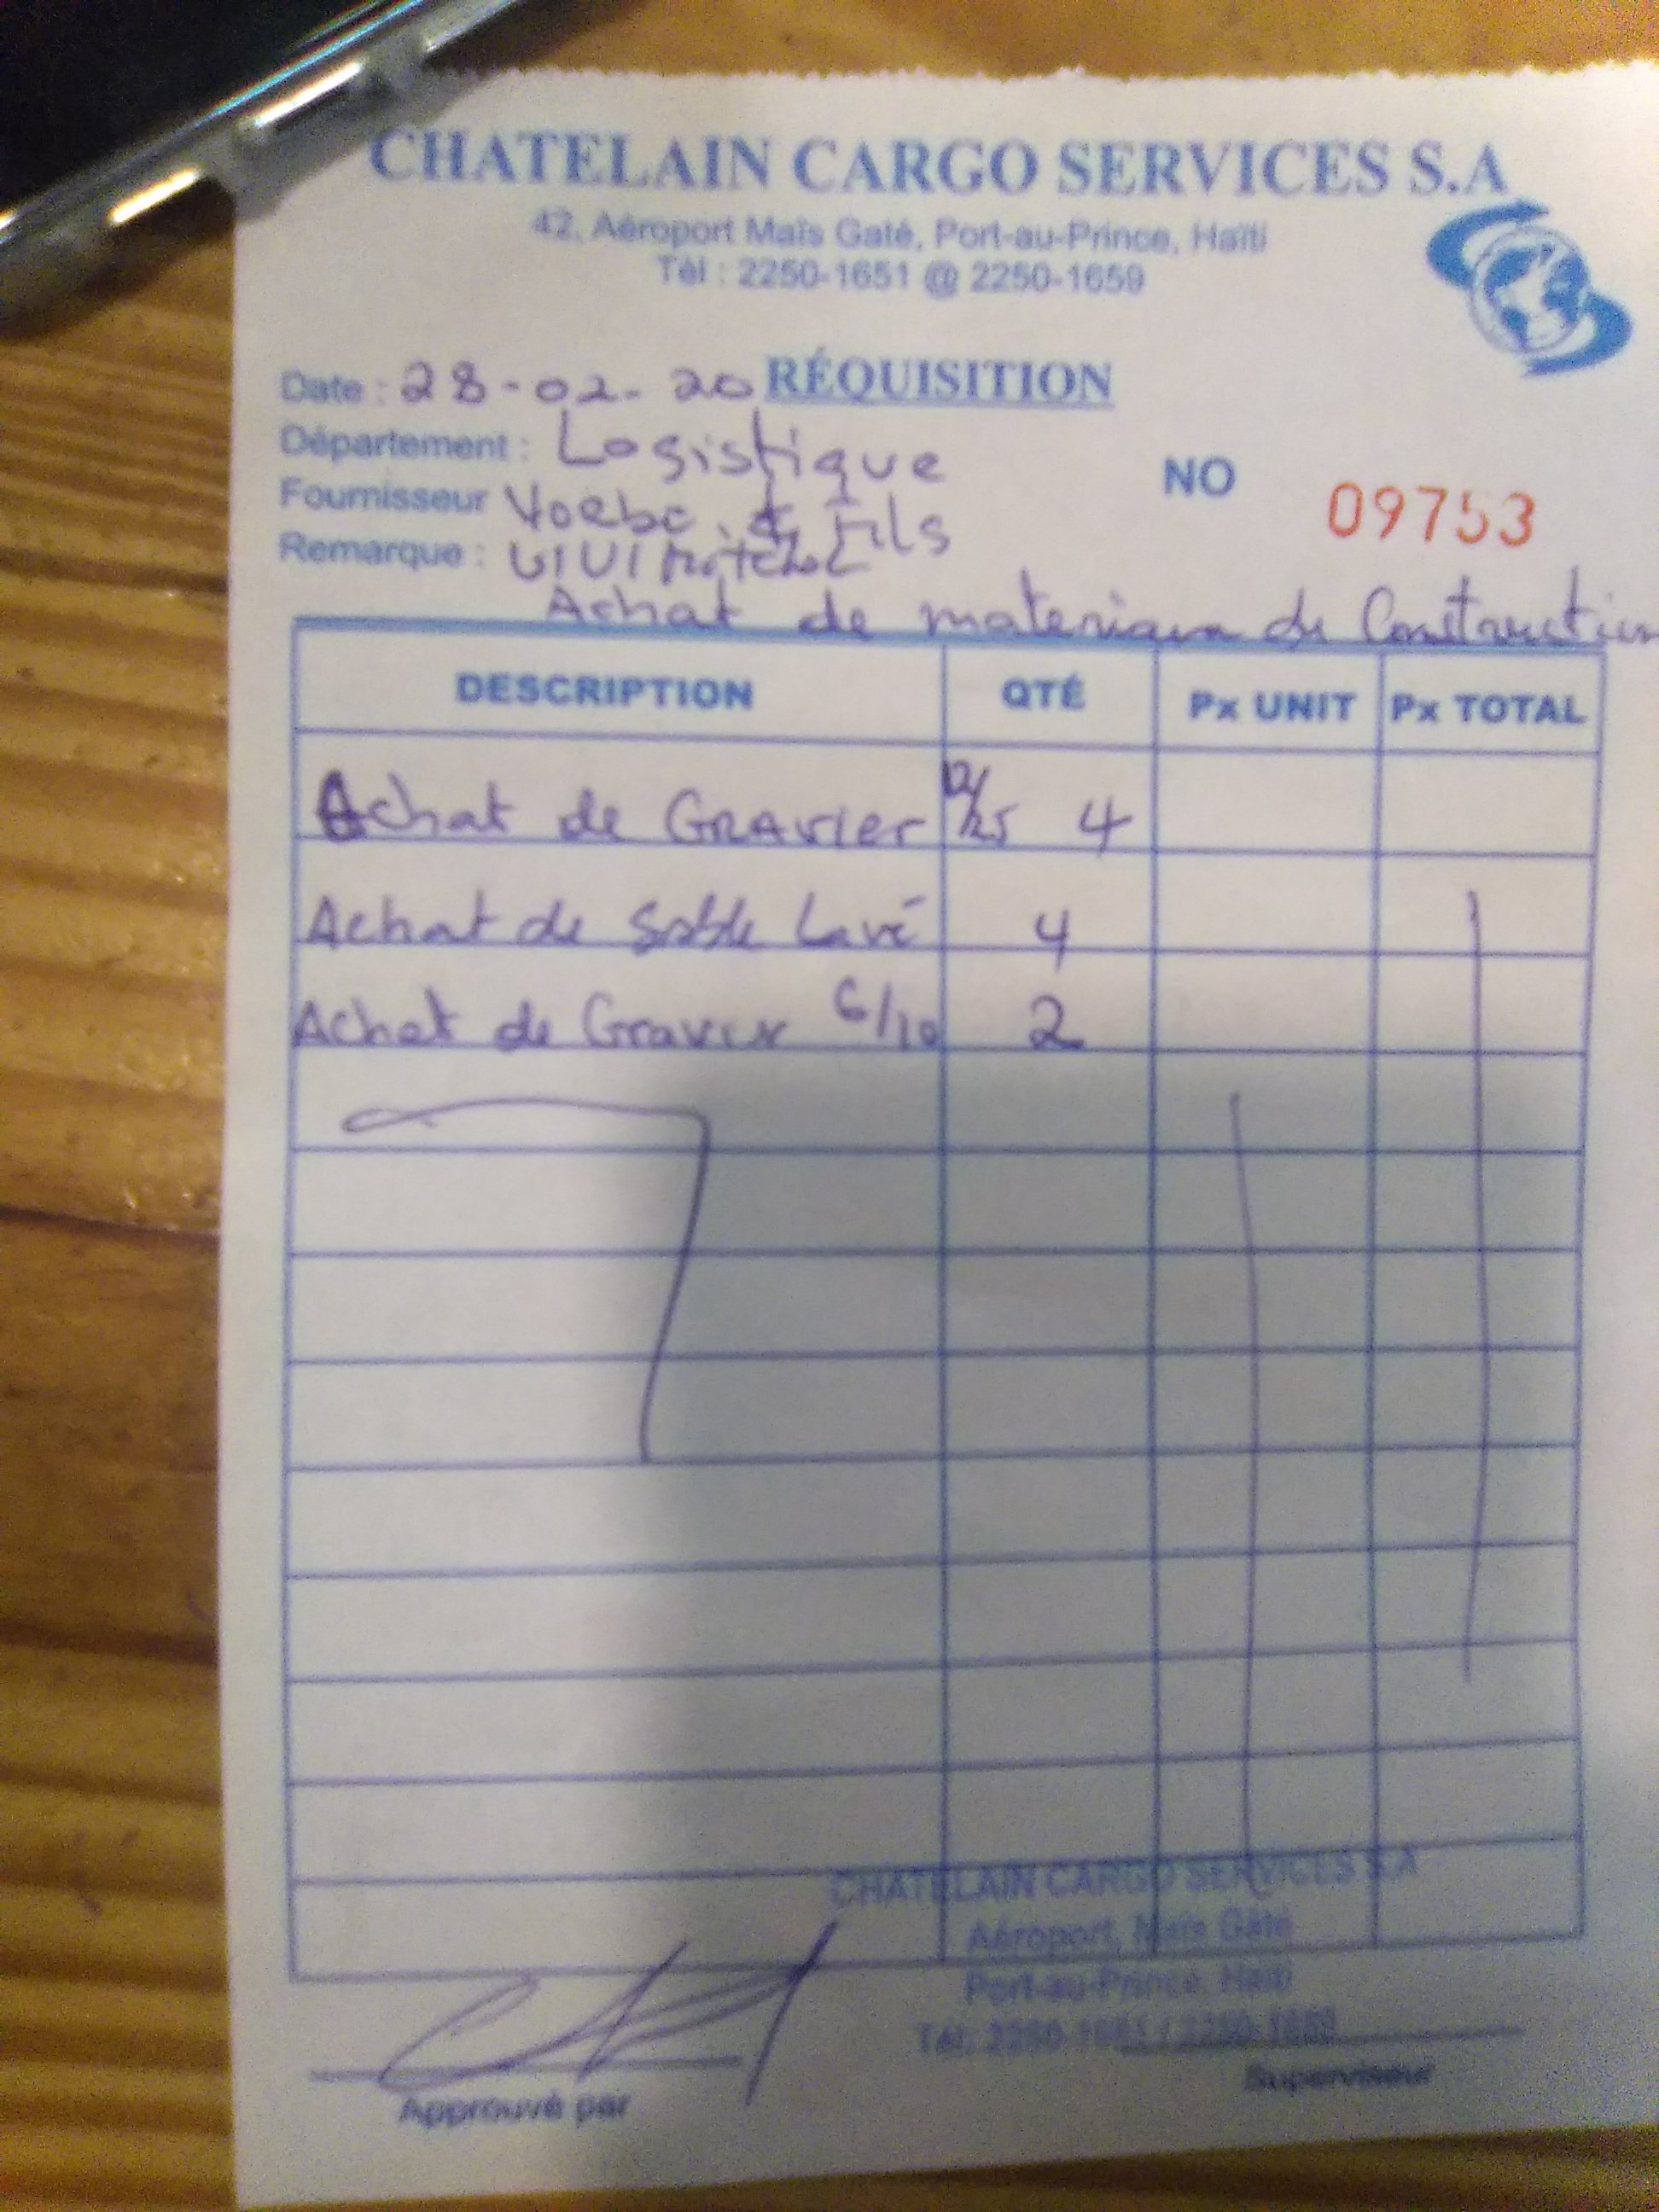 CHATELAIN CARGO SERVICES S.A
42, Aéroport Maïs Gaté, Port-au-Prince, Haïti
Tél : 2250-1651 @ 2250-1659
Date : 28-02-20 RÉQUISITION
Département : Logistique
NO 09753
Fournisseur & Fils
Remarque :
Achat de materiaux de Construction
DESCRIPTION QTÉ Px UNIT Px TOTAL
Achat de GRAVier 12/25 4
Achat de Sable Lavé 4
Achat de Gravier 6/10 2
CHATELAIN CARGO SERVICES S.A
Aéroport, Maïs Gâté
Port-au-Prince, Haïti
Tél: 2250-1651 / 2250-1659
Approuvé par
Superviseur